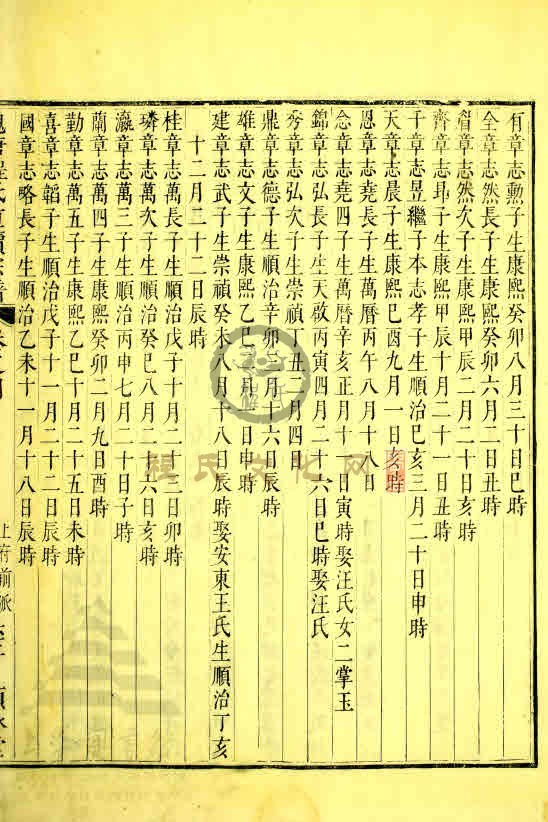 有章志勲子生康熙癸卯八月三十日巳時
全章志然長子生康熙癸卯六月二日丑時
章志然次子生康熙甲辰二月二十日亥時
齊章志子生康熙甲辰十月二十一日丑時
于章志昱繼子本志孝子生順治己亥三月二十日申時
天章志晨子生康熙己酉九月一日亥時
恩章志堯長子生萬曆丙午八月十八日
念章志堯四子生萬曆辛亥正月十一日寅時娶汪氏女二掌玉
錦章志弘長子生天啟丙寅四月二十六日巳時娶汪氏
秀章志弘次子生崇禎丁丑二月四日
鼎章志德子生順治辛卯三月十六日辰時
雄章志文子生康熙乙巳日申時
建章志武子生崇禎癸未八月十八日辰時娶安東王氏生順治丁亥
十二月二十二日辰時
桂章志萬長子生順治戊子十月二十三日卯時
璘章志萬次子生順治癸巳八月二十六日亥時
瀛章志萬三子生順治丙申七月二十日子時
蘭章志萬四子生康熙癸卯二月九日酉時
勤章志萬五子生康熙乙巳十月二十五日未時
喜章志韜子生順治戊子十一月二十二日辰時
國章志略長子生順治乙未十一月十八日辰時
程氏文化网